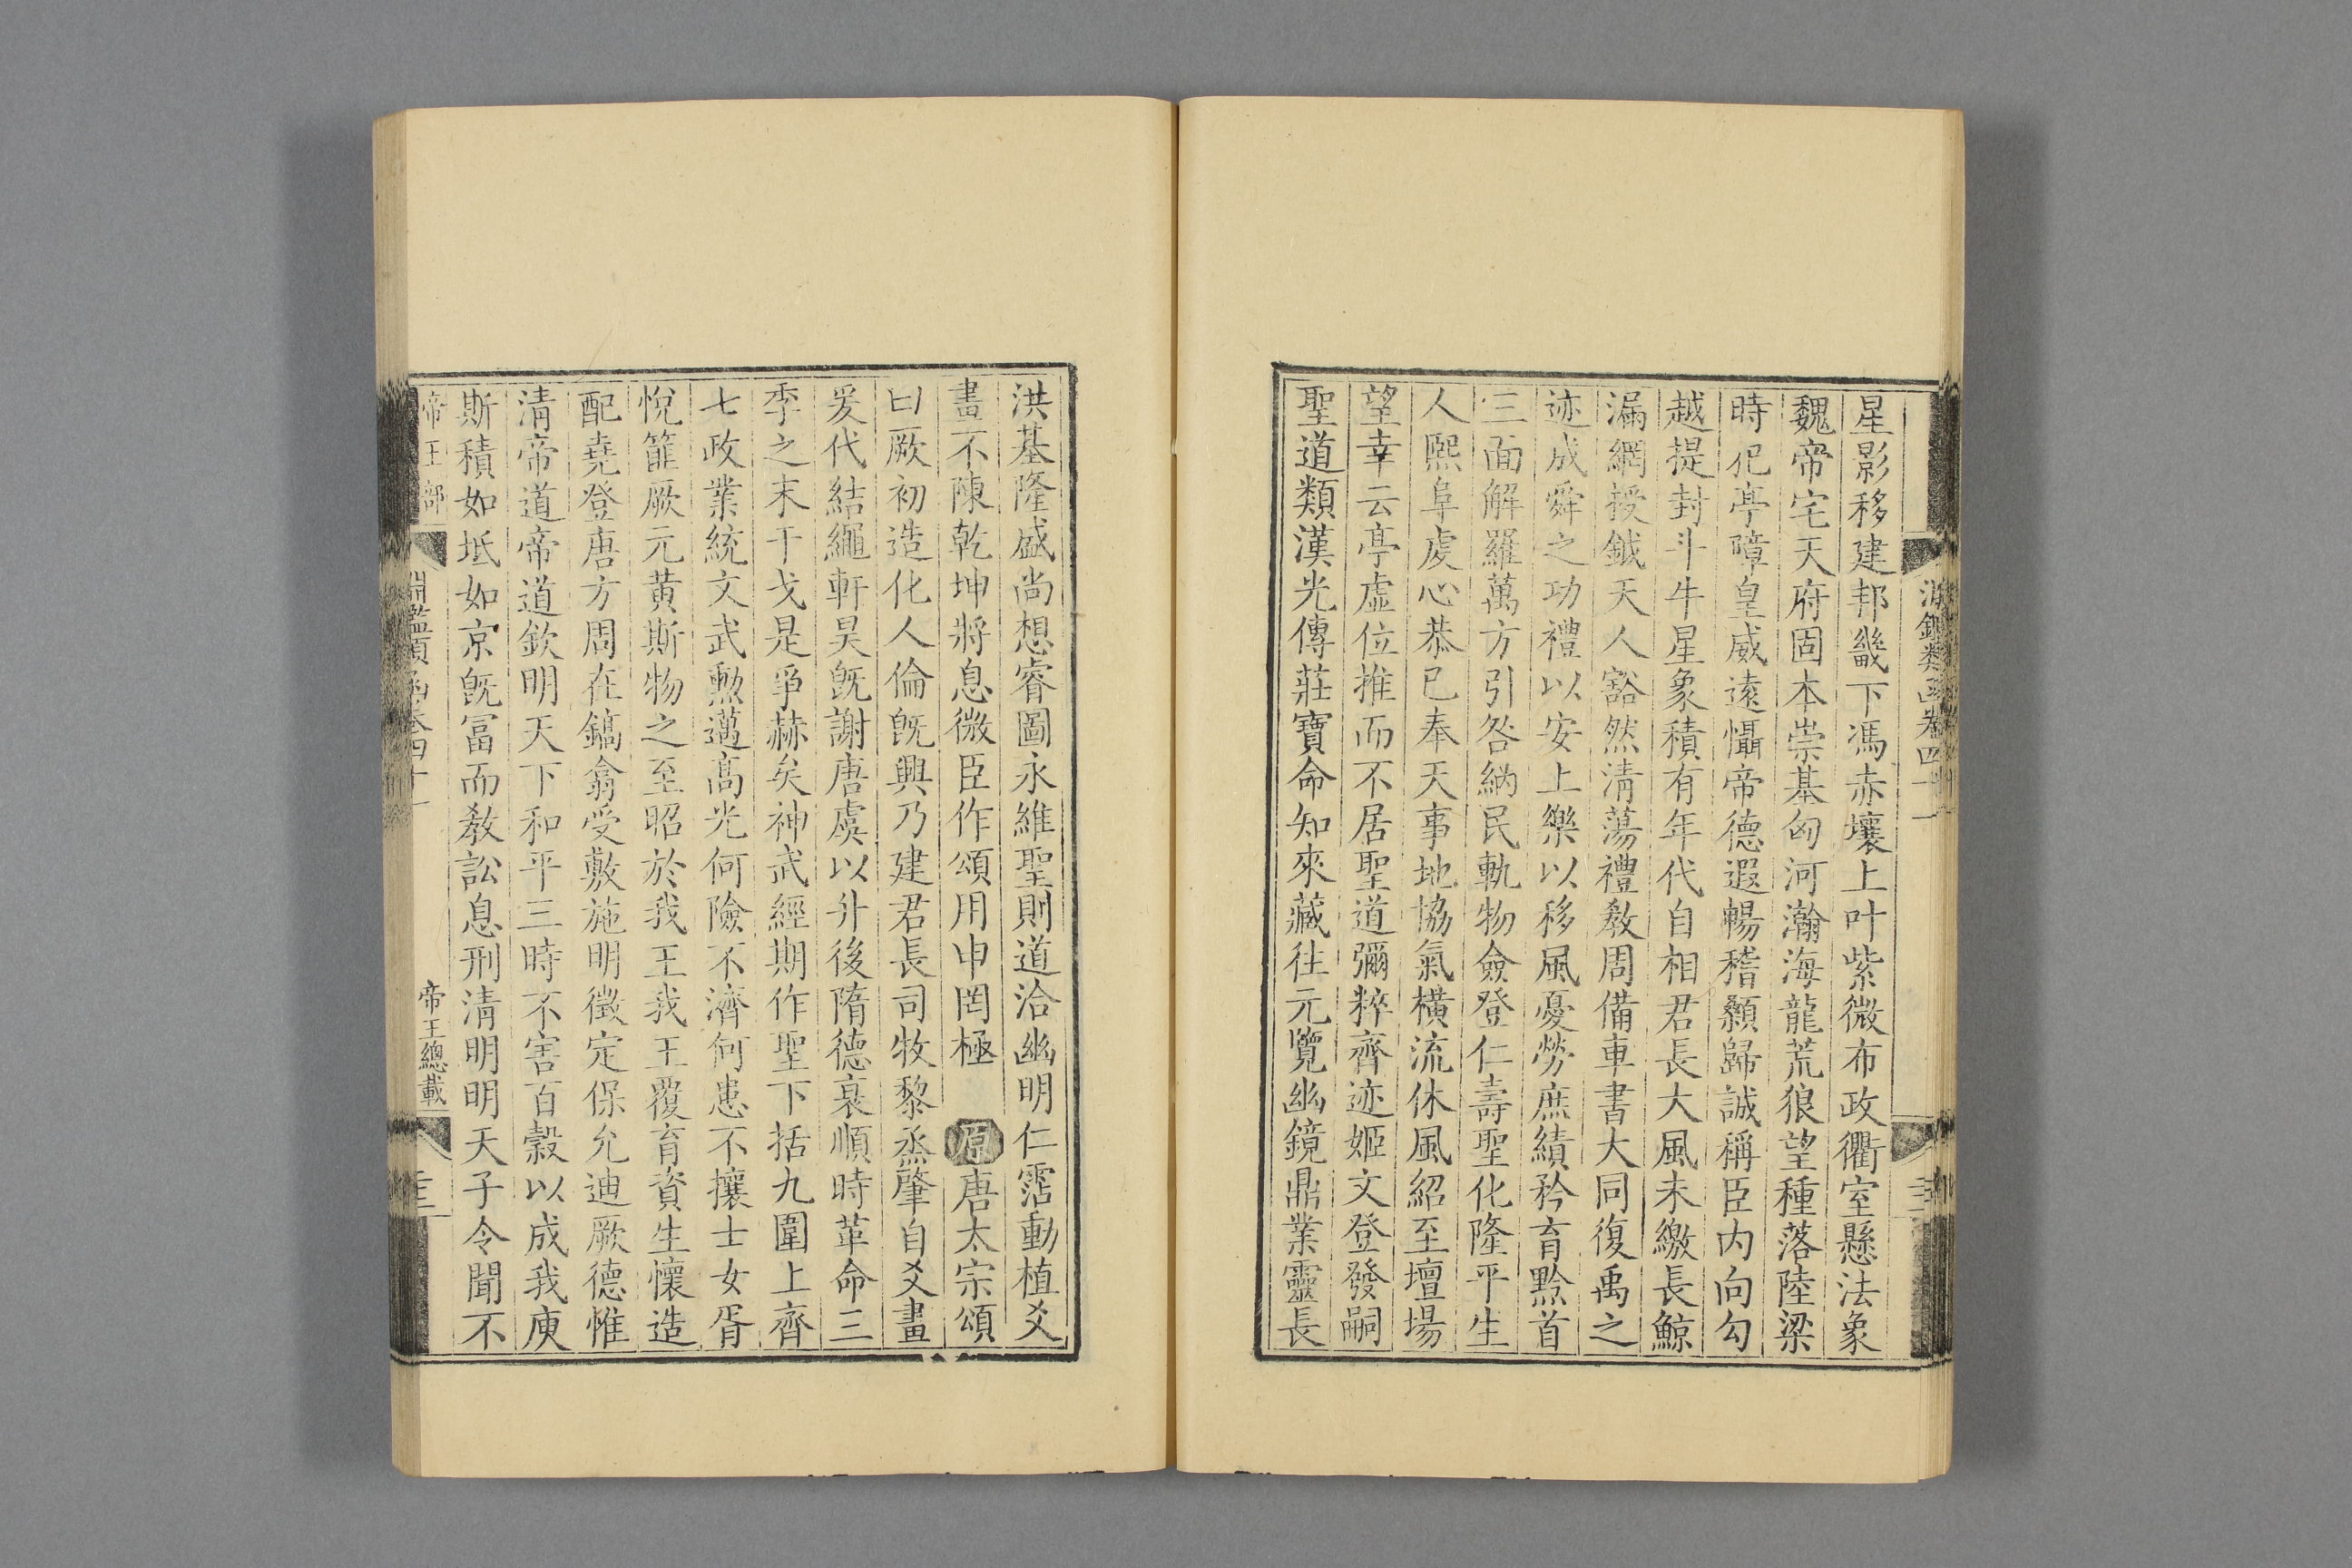 星影移建邦畿下馮赤壤上叶紫微布政衢室懸法象
魏帝宅天府固本崇基匈河瀚海龍荒狼望種落陸梁
時犯亭障皇威遠懾帝德遐暢稽顙歸誠稱臣内向勾
越提封斗牛星象積有年代自相君長大風未繳長鯨
漏網授鉞天人豁然清蕩禮敎周備車書大同復禹之
迹成舜之功禮以安上樂以移風憂勞庶績矜育黔首
三面解羅萬方引咎納民軌物僉登仁壽聖化隆平生
人熙阜虔心恭已奉天事地協氣橫流休風紹至壇場
望幸云亭虛位推而不居聖道彌粹齊迹姬文登發嗣
聖道類漢光傳莊寶命知來藏往元覽幽鏡鼎業靈長
洪基隆盛尚想睿圖永維聖則道洽幽明仁霑動植爻
畫不陳乾坤將息微臣作頌用申罔極 原唐太宗頌
曰厥初造化人倫旣興乃建君長司牧黎烝肇自爻畫
爰代結繩軒昊旣謝唐虞以升後隋德衰順時革命三
季之末干戈是爭赫矣神武經期作聖下括九圍上齊
七政業統文武勲邁高光何險不濟何患不攘士女胥
悅篚厥元黃斯物之至昭於我王我王覆育資生懷造
配堯登唐方周在鎬翕受敷施明徵定保允迪厥德惟
清帝道帝道欽明天下和平三時不害百穀以成我庾
斯積如坻如京旣冨而敎訟息刑清明明天子令聞不
帝王部 淵鑑類函卷四十一 帝王總載